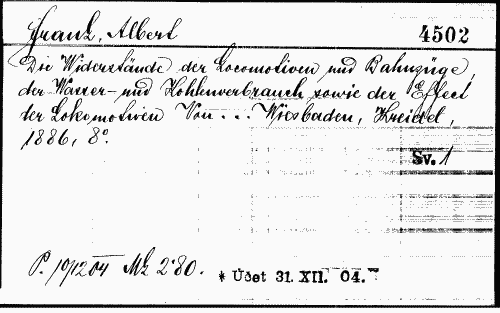 Frank, Albert 4502
Die Widerstände der Locomotiven und Bahnzüge,
der Wasser- und Kohlenverbrauch sowie der Effect
der Lokomotiven Von . . . Wiesbaden, Kreidel,
1886, 8°.
Sv. 1
P. 10/12 04 Mk 2·80. * Uđet 31. XII. 04. *